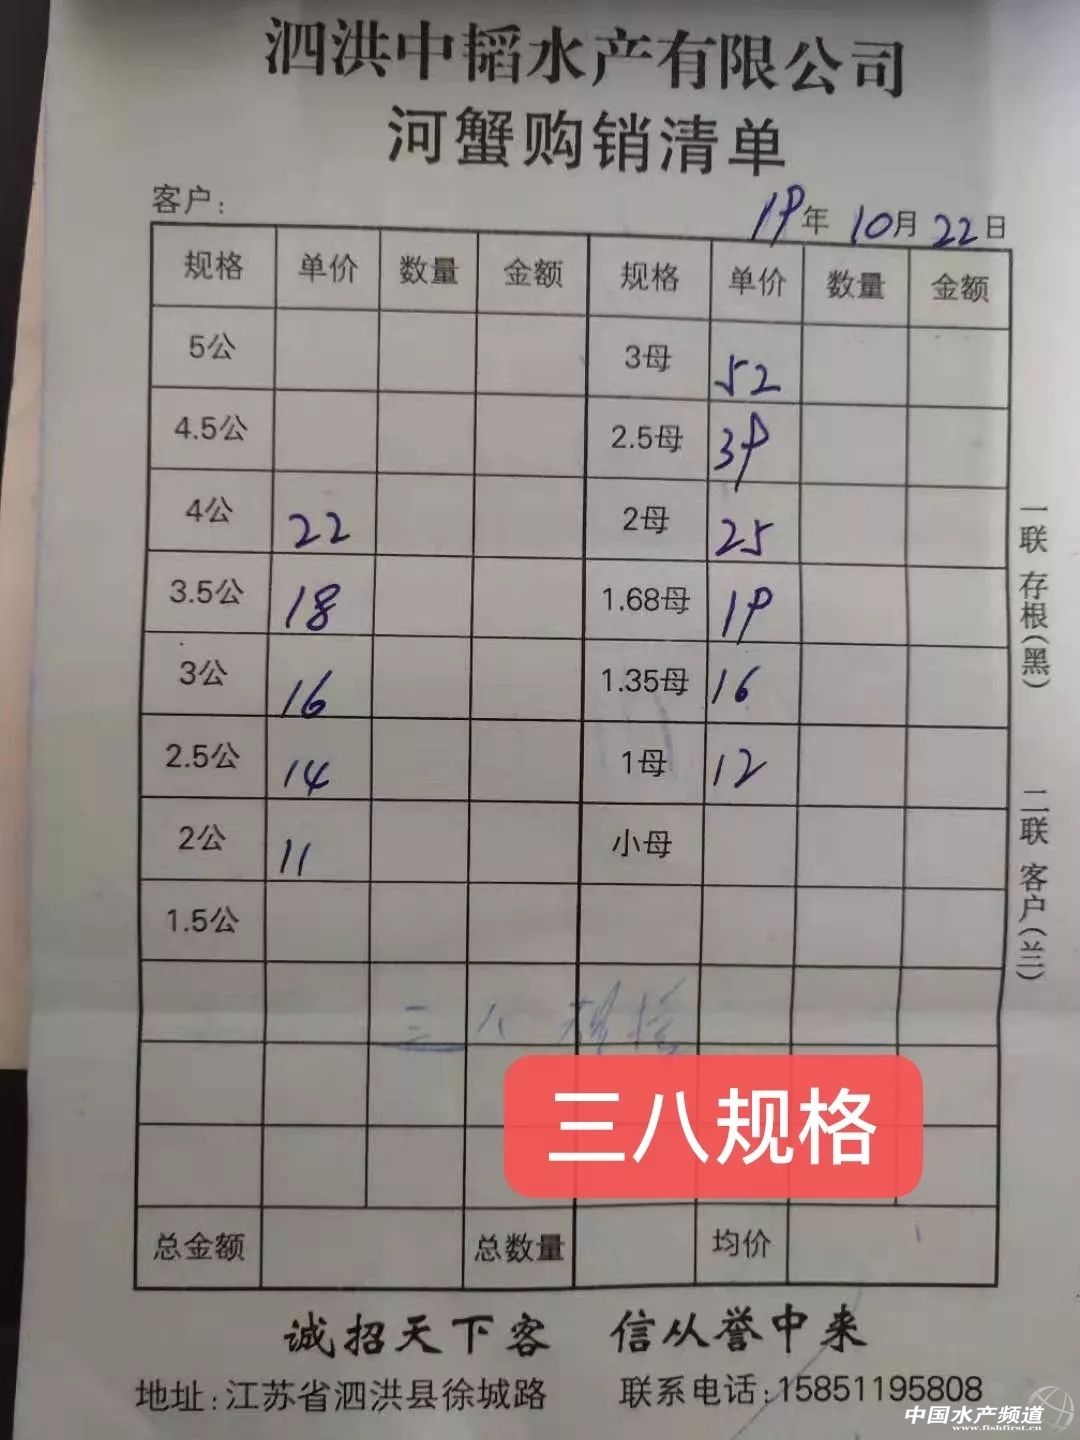 泗洪中韬水产有限公司
河蟹购销清单
客户:
19年 10月 22日
规格 单价 数量 金额 规格 单价 数量 金额
5公 3母 52
4.5公 2.5母 39
4公 22 2母 25
3.5公 18 1.68母 19
3公 16 1.35母 16
2.5公 14 1母 12
2公 11 小母
1.5公
三八规格
三八规格
总金额 总数量 均价
一联 存根(黑)
二联 客户(兰)
诚招天下客 信从誉中来
地址:江苏省泗洪县徐城路 联系电话:15851195808
中国水产频道
www.fishfirst.cn